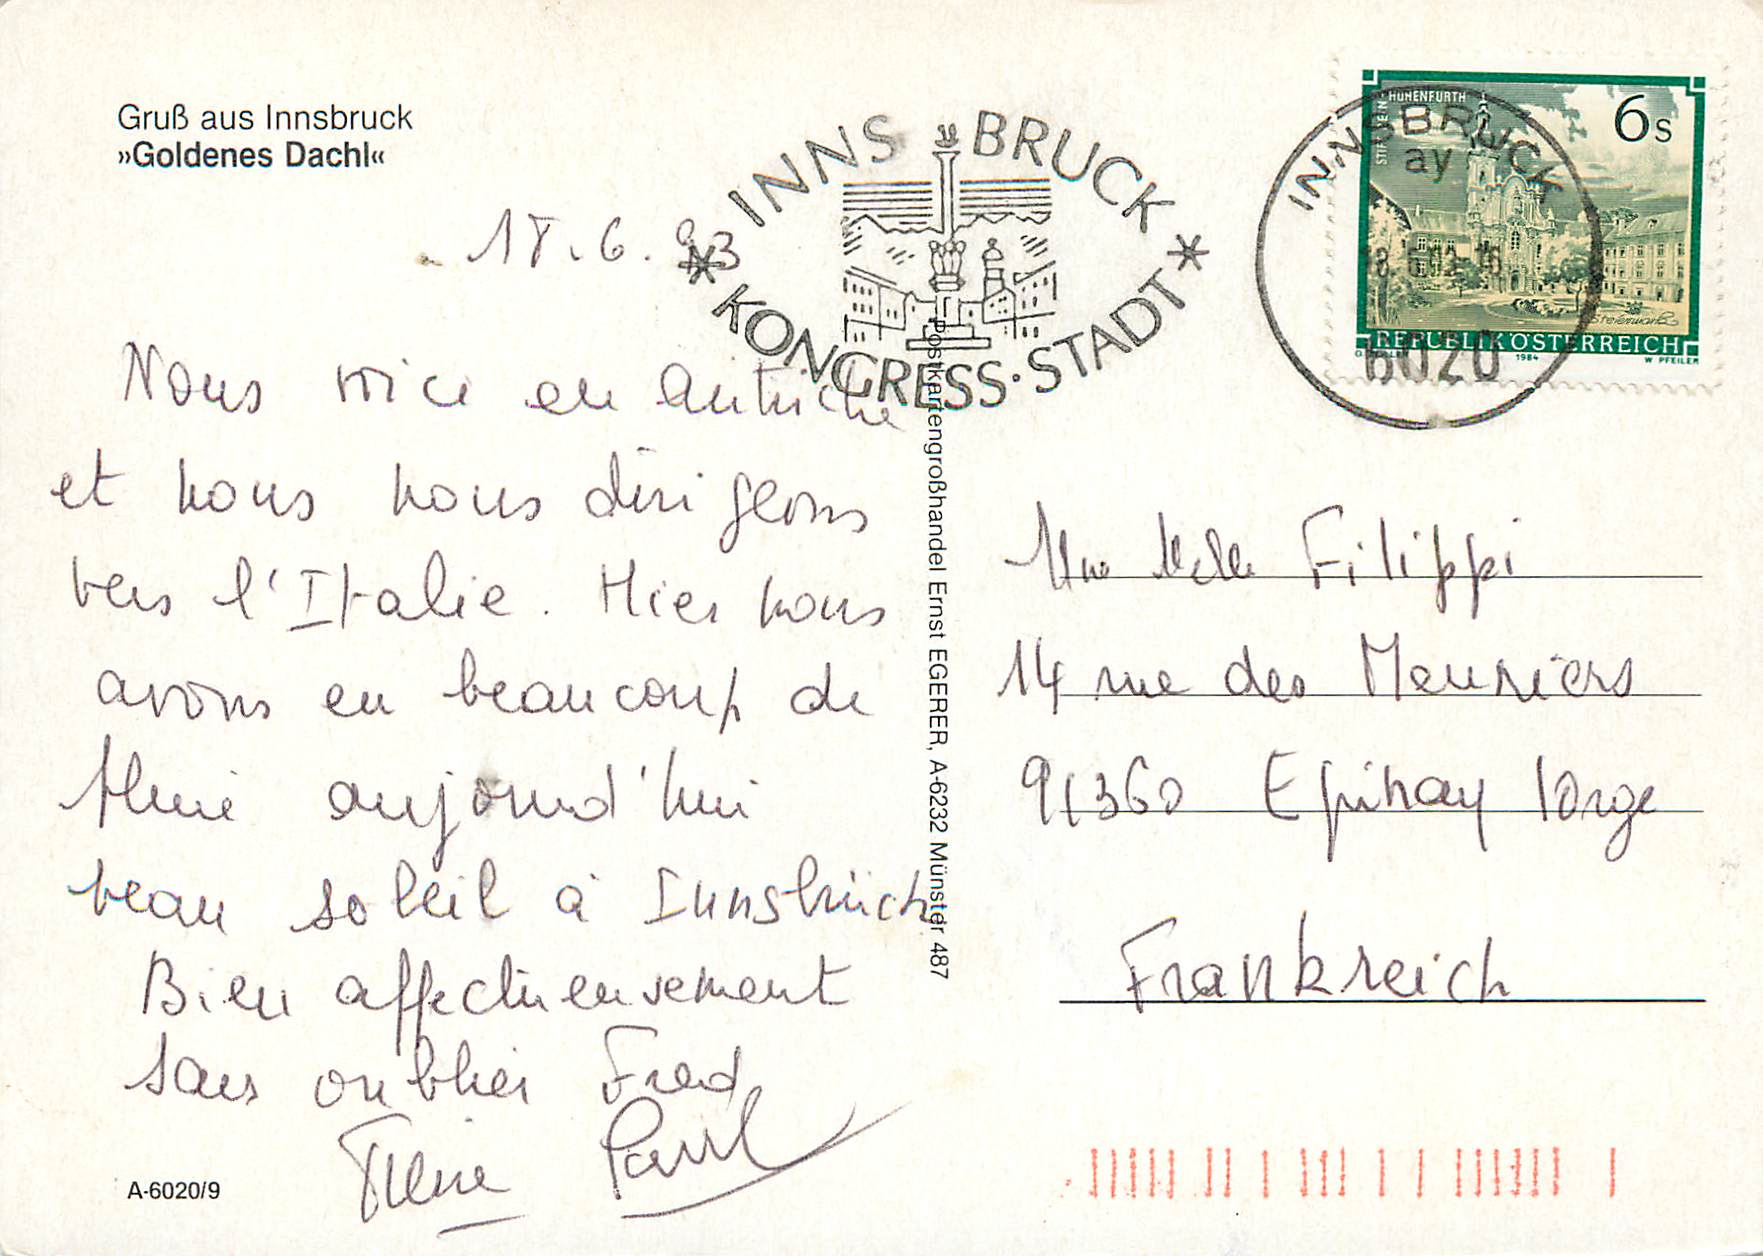 Gruß aus Innsbruck
»Goldenes Dachl«
18.6.93
Nous voici en Autriche
et nous nous dirigeons
vers l'Italie. Hier nous
avons eu beaucoup de
pluie aujourd'hui
beau soleil à Innsbrück
Bien affectueusement
sans oublier Fred
Paul
A-6020/9
Postkartengroßhandel Ernst EGERER, A-6232 Münster 487
INNSBRUCK
KONGRESS·STADT
INNSBRUCK
ay
6020
HOHENFURTH
6s
Steiermark
REPUBLIK ÖSTERREICH
1984
W. PFEILER
Filippi
14 rue des Meuniers
91360 Epinay /Orge
Frankreich